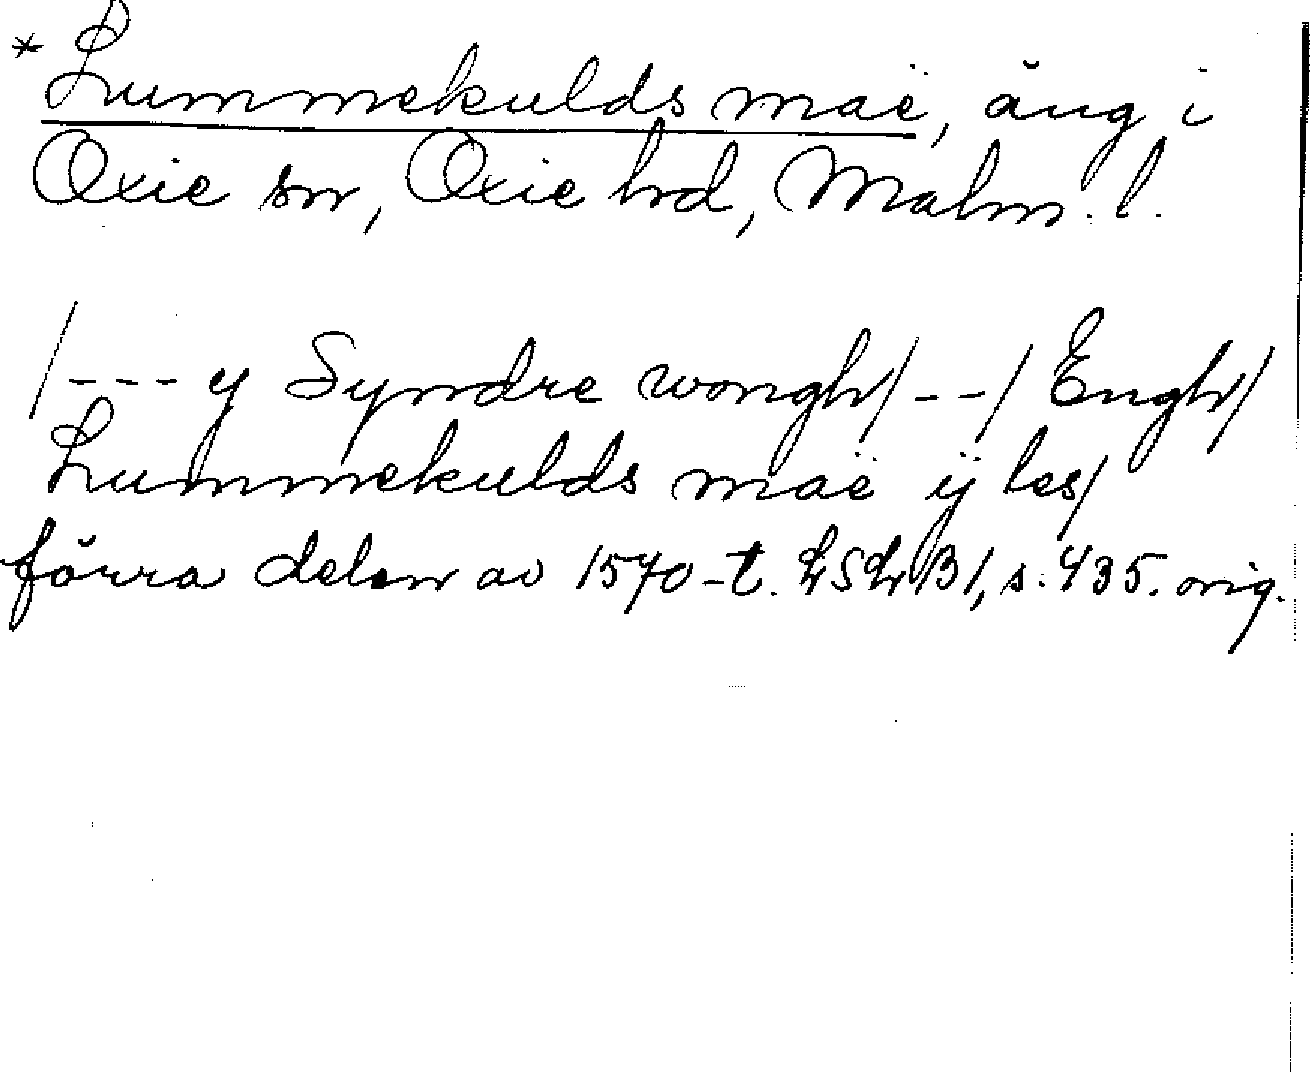 * Lummekulds maë, äng i
Oxie sn, Oxie hd, Malm. l.
/--- y Syndre wongh/ --/ Engh/
Lummekulds maë ÿ les/
förra delen av 1570-t. LSLB1, s. 435. orig.